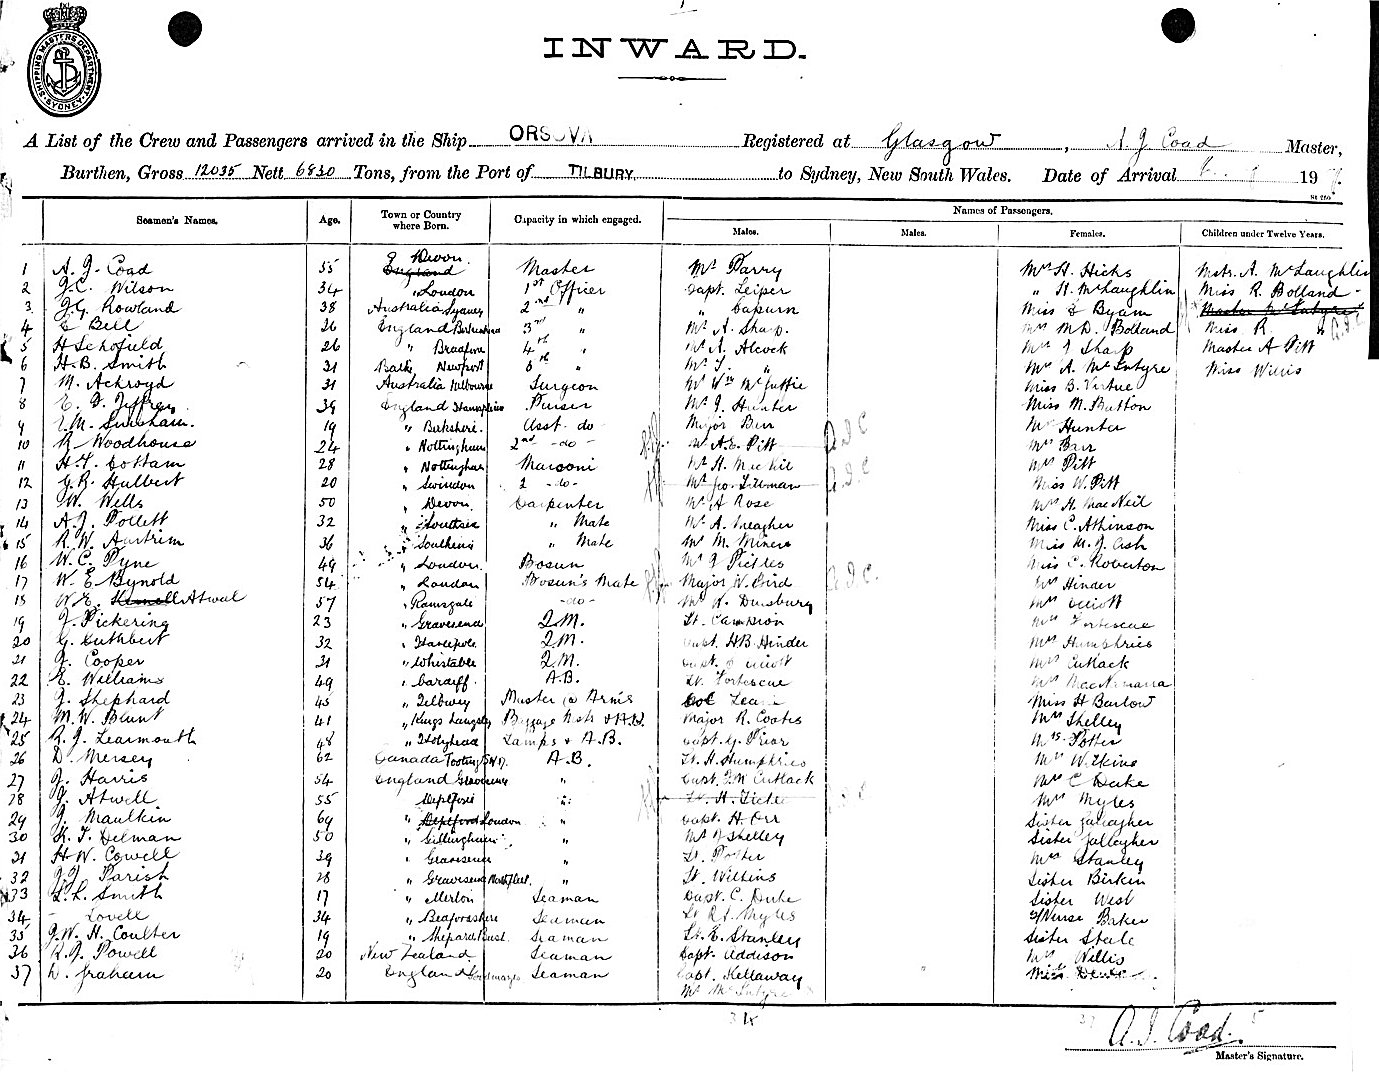 SHIPPING MASTERS DEPARTMENT SYDNEY
INWARD.
A List of the Crew and Passengers arrived in the Ship ORSOVA Registered at Glasgow, A. J. Coad Master,
Burthen, Gross 12035 Nett 6830 Tons, from the Port of TILBURY. to Sydney, New South Wales. Date of Arrival 19
Seamen's Names. Age. Town or Country where Born. Capacity in which engaged. Names of Passengers.
Males. Males. Females. Children under Twelve Years.
1 A. J. Coad 55 England Devon Master Mr Parry Mrs H. Hicks Mstr. A. McLaughlin
2 J.C. Wilson 34 " London 1st Officer Capt. Leiper " H. McLaughlin Miss R. Bolland
3 J.G. Rowland 38 Australia Sydney 2nd " " Capurn Miss L Byam Master McIntyre
4 E Bell 26 England 3rd " Mr A. Sharp. Mrs M.D. Bolland Miss R. "
5 H Schofield 26 " Bradford 4th " Mr A. Alcock Mrs J Sharp Master A Pitt
6 H.B. Smith 21 Newport 5th " Mr T. " Mrs A. McIntyre Miss Willis
7 M. Ackroyd 31 Australia Melbourne Surgeon Mr Wm McGuffie Miss B. Virtue
8 E. J. Jeffrey 39 England Hampshire Purser Mr J. Hunter Miss M. Button
9 Swinham. 19 " Berkshire. Asst. do Major Barr Mrs Hunter
10 R Woodhouse 24 " Nottingham 2nd -do- Mr A.E. Pitt Mrs Barr
11 H.Y. Cottam 28 " Nottingham Marconi Mr H. MacNeil Mrs Pitt
12 G.R. Hulbert 20 " Swindon 2 -do- Mr Jo. Tillman Miss W. Pitt
13 W. Wells 50 " Devon Carpenter Mr A Rose Mrs H. MacNeil
14 A.J. Pollett 32 " Southsea " Mate Mr A. Meagher Miss C. Atkinson
15 R.W. Antrim 36 " " Mate Mr M. Miners Miss M. J. Cash
16 W.C. Pyne 49 " London. Bosun Mr J Pickles Miss C. Roberton
17 W. E. Bynold 54 " London Bosun's Mate Major W. Bird Mrs Hinder
18 W.E. Atwal 57 " Ramsgate -do- Mr H. Duesbury Mrs Elliott
19 J. Pickering 23 " Gravesend Q.M. Lt. Campion Mrs Fortescue
20 G. Cuthbert 32 " Hartlepool Q.M. Capt. H.B. Hinder Mrs Humphries
21 J. Cooper 31 " Whistable Q.M. Capt. Elliott Mrs Cutlack
22 E. Williams 49 " Cardiff. A.B. Lt. Fortescue Mrs MacNamara
23 J. Shephard 45 " Tilbury Master @ Arms Col Lean Miss H Barlow
24 M.W. Blunt 41 " Kings Langley Baggage & A.B. Major R. Coates Mrs Shelley
25 R.J. Learmouth 48 " Holyhead Lamps & A.B. Capt. G. Prior Mrs Potter
26 D. Mersey 62 Canada Tooting A.B. Lt. H. Humphries Mrs Wilkins
27 J. Harris 54 England Gravesend " Capt. F.M. Cutlack Mrs C Duke
28 J. Atwell 55 Deptford " Lt. H. Mrs Myles
29 J. Maulkin 64 " Deptford London " Capt. H Orr Sister Gallagher
30 K. J. Delman 50 " Gillingham " Mr J Shelley Sister Gallagher
31 H W. Cowell 39 " Gravesend " Lt. Potter Mrs Stanley
32 J.J. Parish 28 " Gravesend Northfleet " Lt. Wilkins Sister Birkin
33 L.L. Smith 17 " Merton Seaman Capt. C. Duke Sister West
34 - Lovell 34 " Bedfordshire Seaman Lt R.J. Myles Nurse Baker
35 J.W.H. Coulter 19 " Shepards Bush. Seaman Lt. E. Stanley Sister Steele
36 R.J. Powell 20 New Zealand Seaman Capt. Addison Mrs Willis
37 L. Graham 20 England Seaman Capt. Kellaway Miss
Mr McIntyre
A. J. Coad.
Master's Signature.